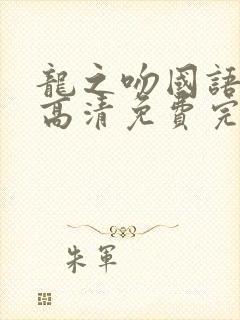 龍之吻國語
高清免費完
朱軍